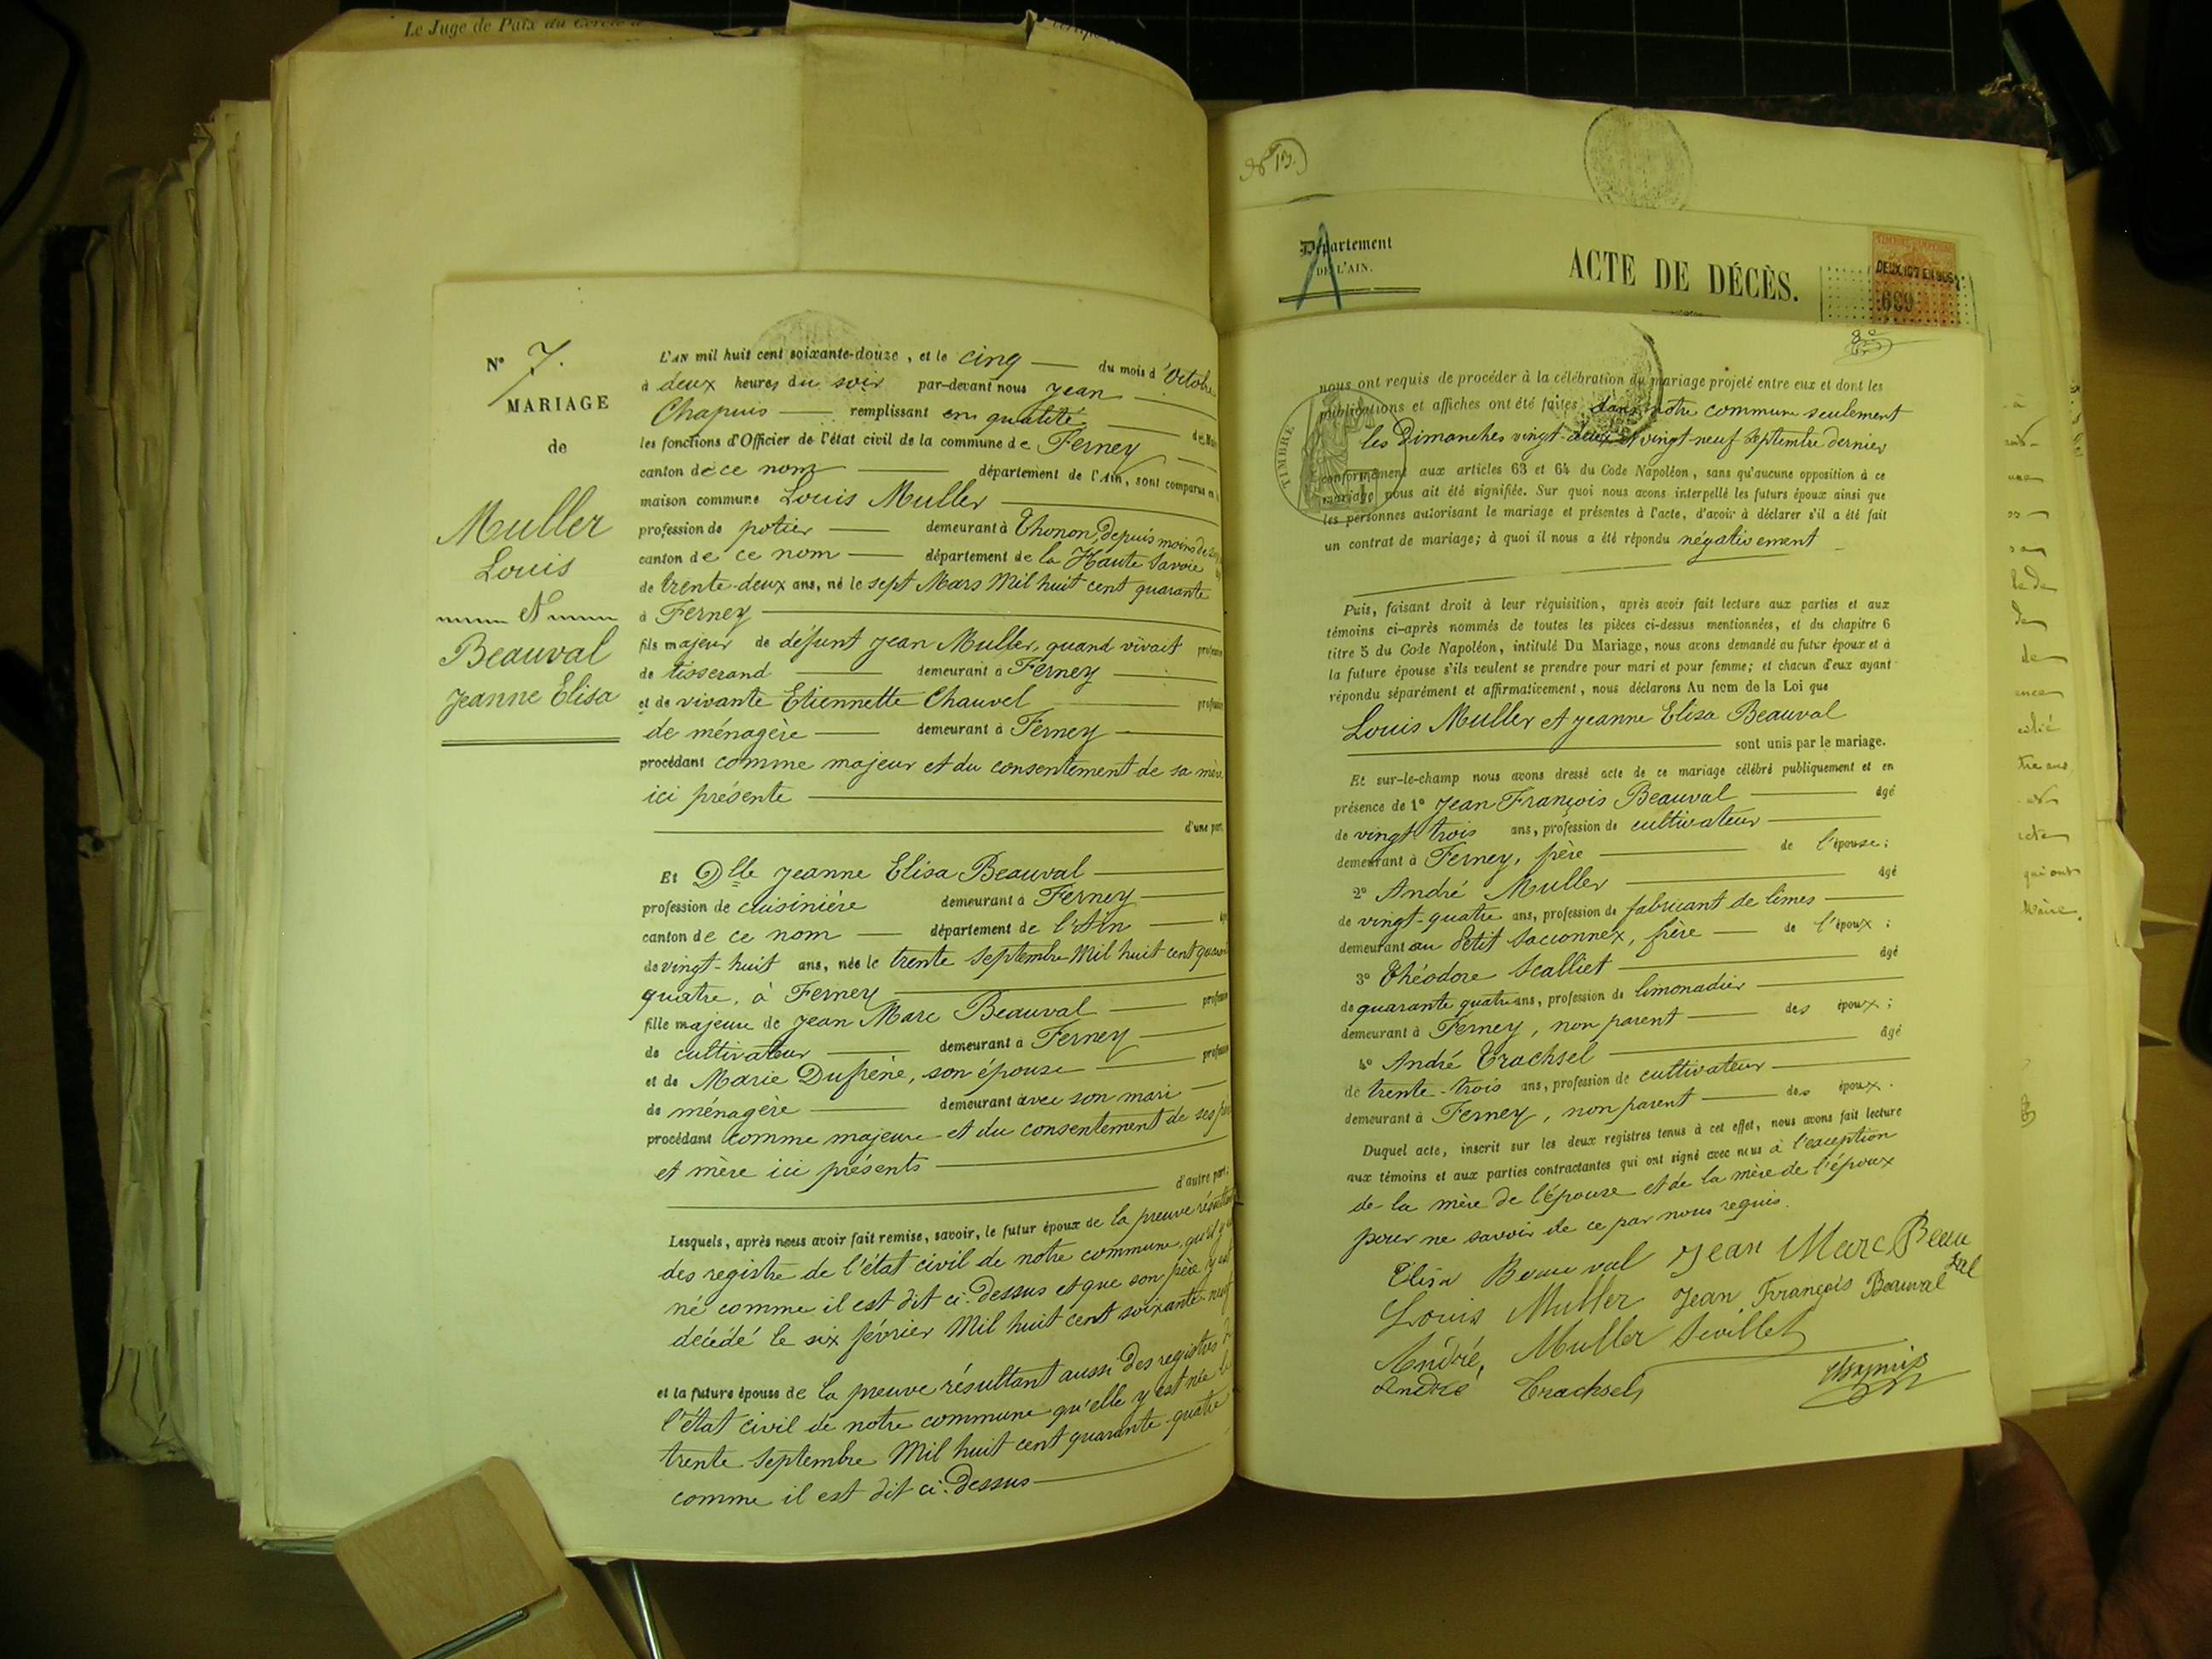 Le Juge de Paix du Cercle
N° 7.
MARIAGE
de
Muller
Louis
Et
Beauval
Jeanne Elisa
L'AN mil huit cent soixante-douze, et le cinq du mois d'Octobre
à deux heures du soir par-devant nous Jean
Chapuis remplissant en qualité de Maire
les fonctions d'Officier de l'état civil de la commune de Ferney
canton de ce nom département de l'Ain, sont comparus en
maison commune Louis Muller
profession de potier demeurant à Thonon, depuis moins de
canton de ce nom département de la Haute Savoie
de trente-deux ans, né le sept Mars Mil huit cent quarante
à Ferney
fils majeur de défunt Jean Muller, quand vivait profession
de tisserand demeurant à Ferney
et de vivante Etiennette Chauvel profession
de ménagère demeurant à Ferney
procédant comme majeur et du consentement de sa mère
ici présente
d'une part,
Et Dlle Jeanne Elisa Beauval
profession de cuisinière demeurant à Ferney
canton de ce nom département de l'Ain
de vingt-huit ans, née le trente Septembre Mil huit cent quarante
quatre, à Ferney
fille majeure de Jean Marc Beauval profession
de cultivateur demeurant à Ferney
et de Marie Dufrène, son épouse profession
de ménagère demeurant avec son mari
procédant comme majeure et du consentement de ses père
et mère ici présents
d'autre part;
Lesquels, après nous avoir fait remise, savoir, le futur époux de la preuve résultant
des registre de l'état civil de notre commune, qu'il y est
né comme il est dit ci-dessus et que son père y est
décédé le six février Mil huit cent soixante-neuf
et la future épouse de la preuve résultant aussi des registres de
l'état civil de notre commune qu'elle y est née le
trente Septembre Mil huit cent quarante-quatre
comme il est dit ci-dessus
N° 13.
Département
DE L'AIN.
ACTE DE DÉCÈS.
699
TIMBRE
nous ont requis de procéder à la célébration du mariage projeté entre eux et dont les
publications et affiches ont été faites dans notre commune seulement
les Dimanches vingt-deux et vingt-neuf Septembre dernier
conformément aux articles 63 et 64 du Code Napoléon, sans qu'aucune opposition à ce
mariage nous ait été signifiée. Sur quoi nous avons interpellé les futurs époux ainsi que
les personnes autorisant le mariage et présentes à l'acte, d'avoir à déclarer s'il a été fait
un contrat de mariage; à quoi il nous a été répondu négativement
Puis, faisant droit à leur réquisition, après avoir fait lecture aux parties et aux
témoins ci-après nommés de toutes les pièces ci-dessus mentionnées, et du chapitre 6
titre 5 du Code Napoléon, intitulé Du Mariage, nous avons demandé au futur époux et à
la future épouse s'ils veulent se prendre pour mari et pour femme; et chacun d'eux ayant
répondu séparément et affirmativement, nous déclarons Au nom de la Loi que
Louis Muller et Jeanne Elisa Beauval
sont unis par le mariage.
Et sur-le-champ nous avons dressé acte de ce mariage célébré publiquement et en
présence de 1° Jean François Beauval âgé
de vingt trois ans, profession de cultivateur
demeurant à Ferney, frère de l'épouse;
2° André Muller âgé
de vingt-quatre ans, profession de fabricant de limes
demeurant au Petit Saconnex, frère de l'époux;
3° Théodore Scalliet âgé
de quarante quatre ans, profession de limonadier
demeurant à Ferney, non parent des époux;
4° André Trachsel âgé
de trente-trois ans, profession de cultivateur
demeurant à Ferney, non parent des époux.
Duquel acte, inscrit sur les deux registres tenus à cet effet, nous avons fait lecture
aux témoins et aux parties contractantes qui ont signé avec nous à l'exception
de la mère de l'épouse et de la mère de l'époux
pour ne savoir de ce par nous requis.
Elisa Beauval Jean Marc Beau
val
Louis Muller Jean François Beauval
André Muller
André Trachsel